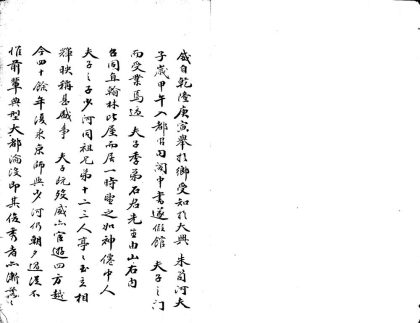 威自乾隆庚寅舉於鄉受知於大興朱笥河夫
子歲甲午入都留閣中書遂假館夫子之門
而受業焉迨夫子季弟石君先生由山右內
召同直翰林比屋而居一時望之如神僊中人
夫子之子少河同祖兄弟十二三人亭亭玉立相
輝映稱甚盛事夫子既歿威亦宦遊四方越
今四十餘年復來京師與少河仍朝夕過從不
惟前輩典型大都淪沒即其後秀者亦漸落落